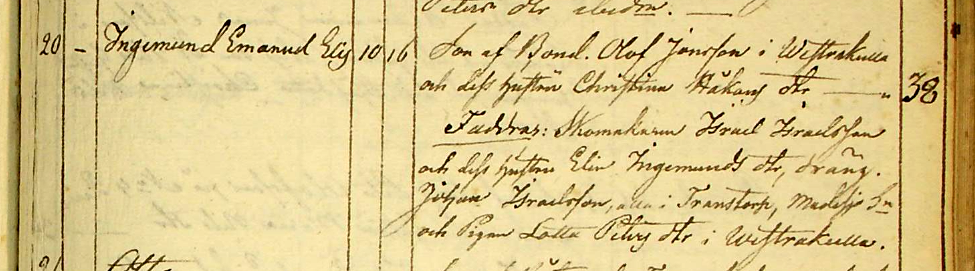 Peters dtr
20 - Ingemund Emanuel Elis 10 16 Son af Bond. Olof Jonsson i Westrakulla
och dess hustru Christina Håkans dtr — " 38
Faddrar: Skomakaren Israel Israelsson
och dess hustru Elin Ingemunds dtr, dräng.
Johan Israelsson, alla i Transtorp, Madesjö Sn
och Pigan Lotta Peters dtr i Westrakulla.
21 Otto